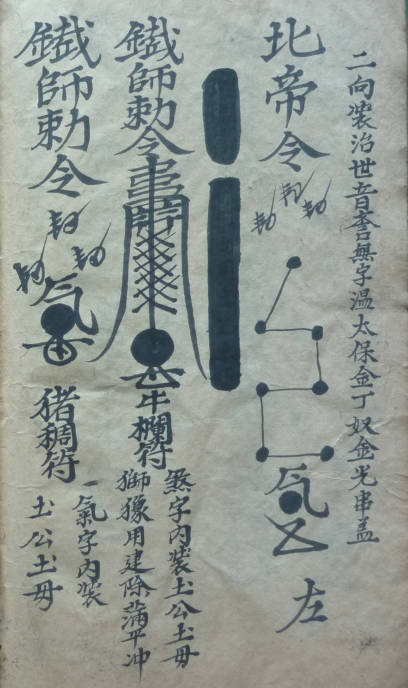 二向裝治世音 無字温太保金丁奴金光串蓋
北帝令
左
鐵師勅令
牛欄符
煞字内裝土公土毋
獅㺄用建除滿平冲
鐵師勅令
猪稠符
一氣字内裝
土公土毋